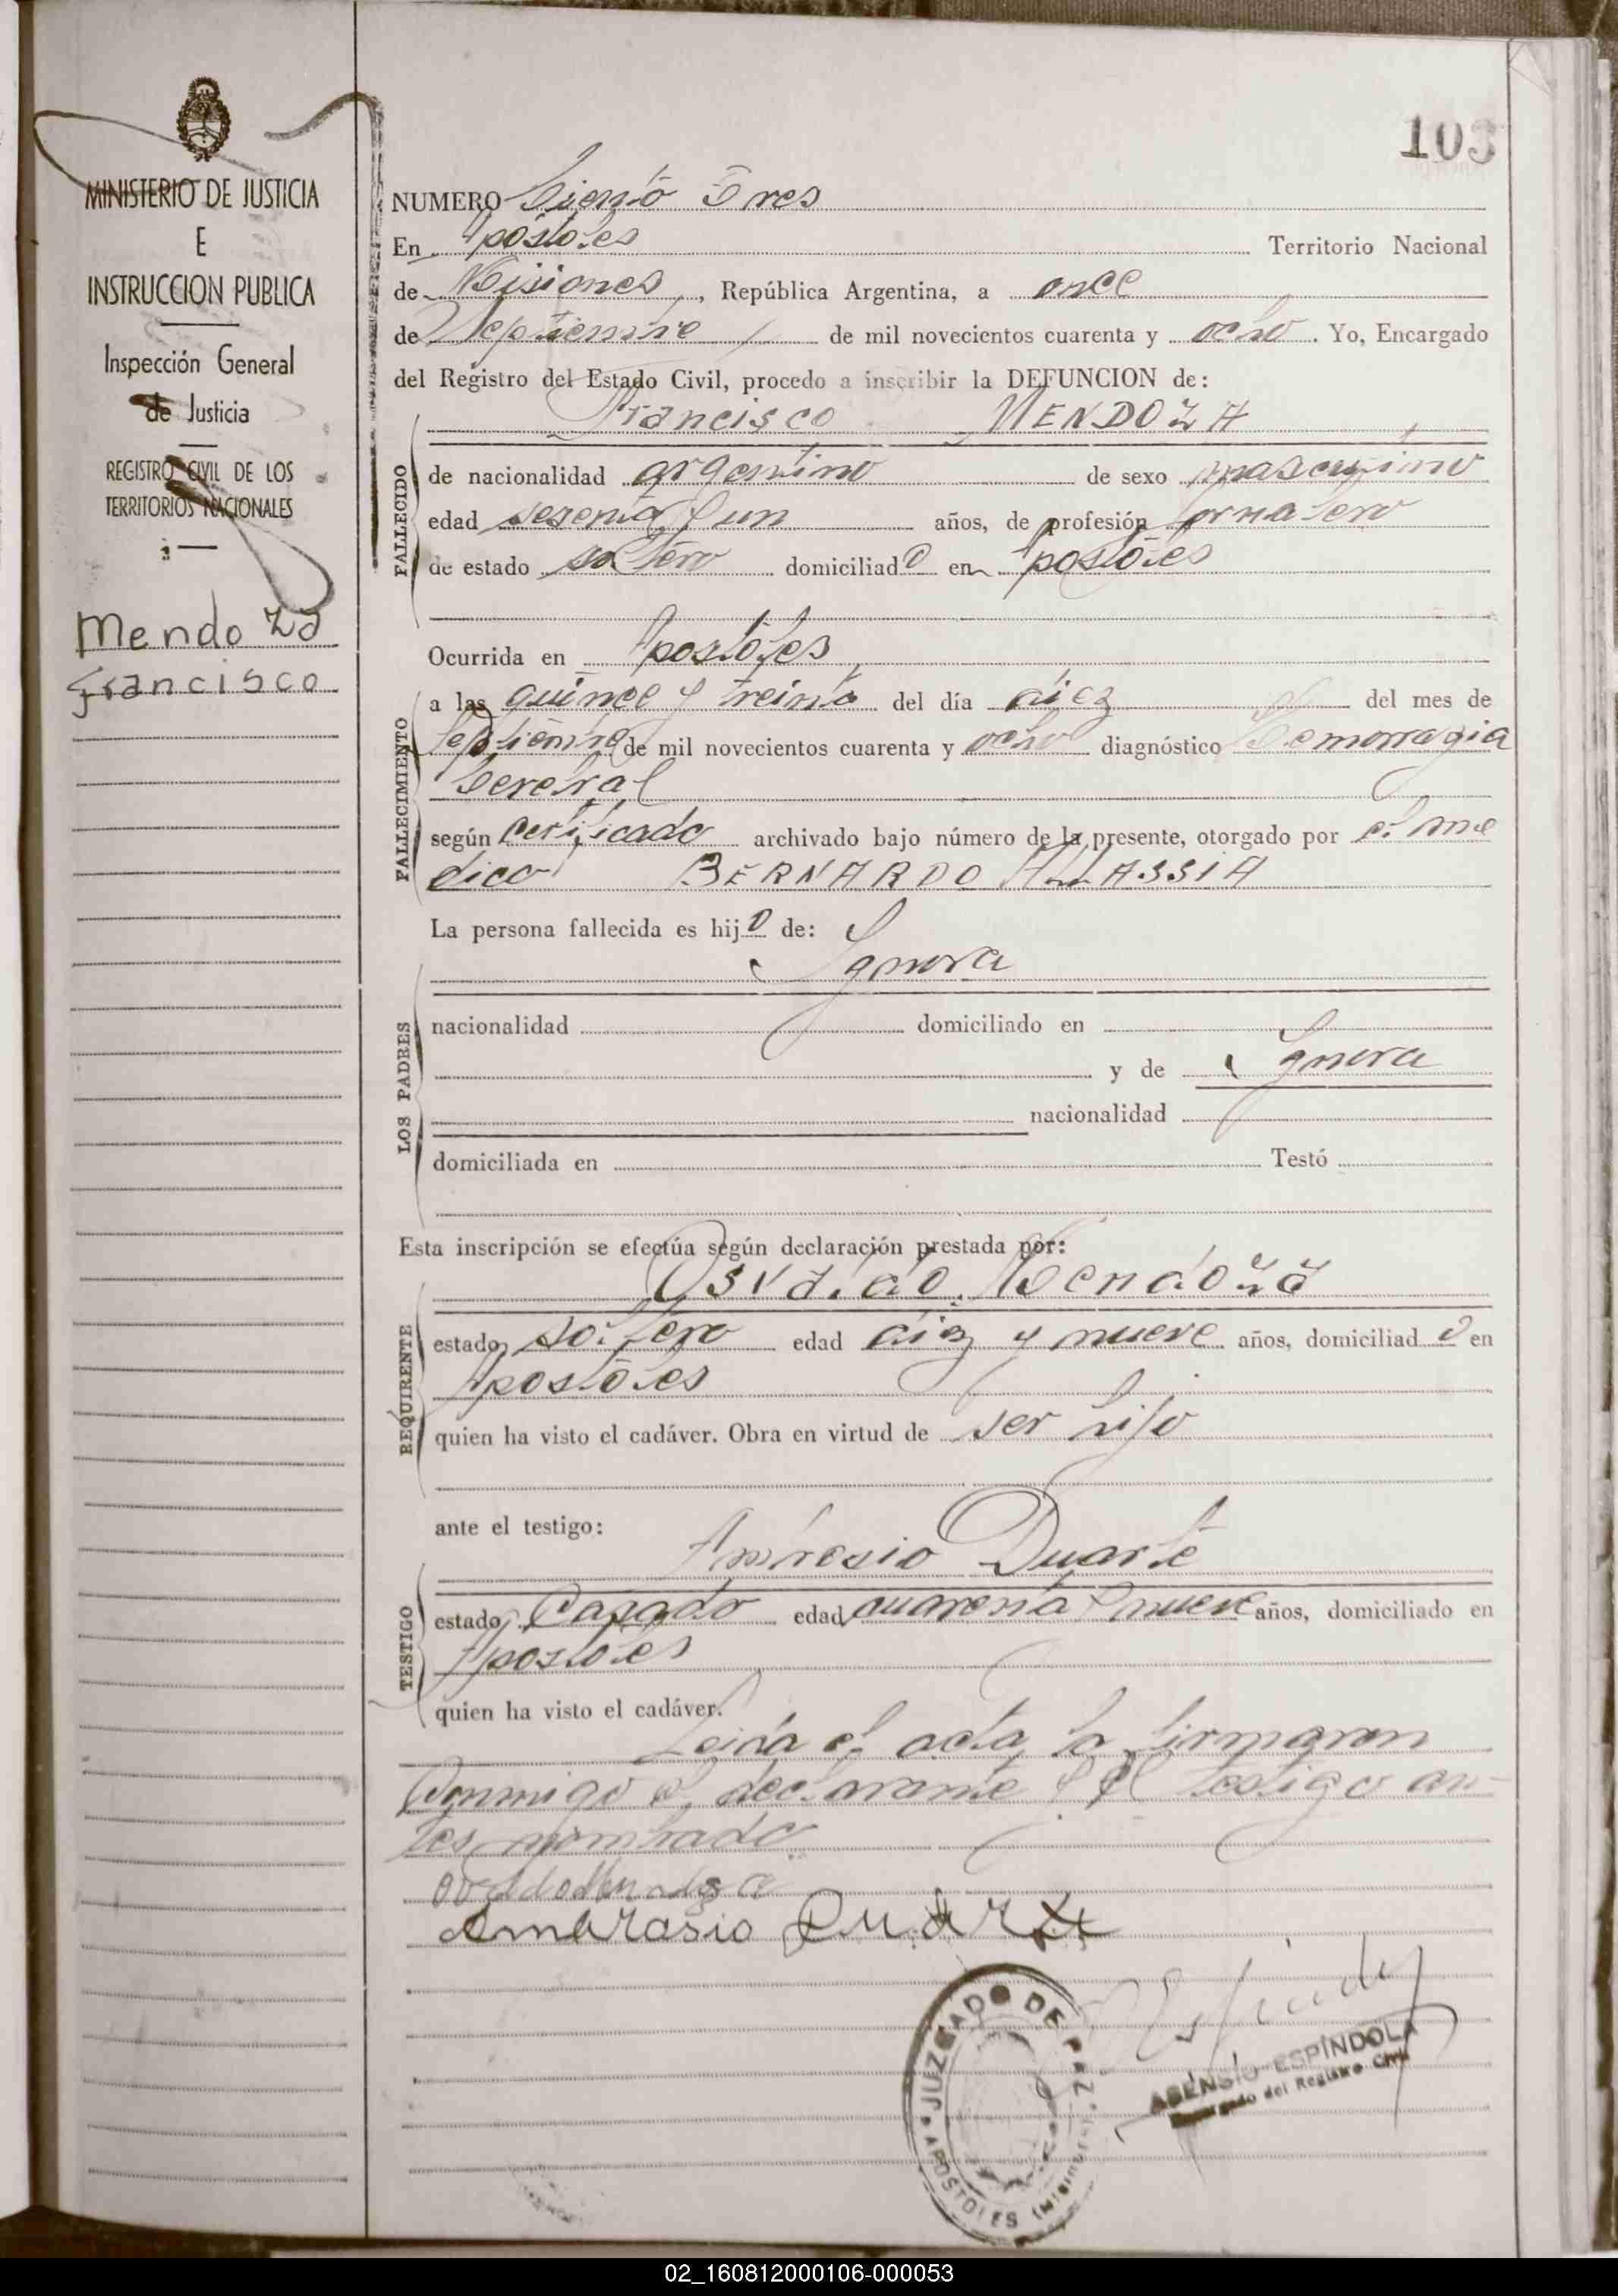 103
MINISTERIO DE JUSTICIA
E
INSTRUCCION PUBLICA
Inspección General
de Justicia
REGISTRO CIVIL DE LOS
TERRITORIOS NACIONALES
Mendoza
Francisco
NUMERO Ciento Tres
En Apóstoles Territorio Nacional
de Misiones, República Argentina, a once
de Septiembre de mil novecientos cuarenta y ocho. Yo, Encargado
del Registro del Estado Civil, procedo a inscribir la DEFUNCION de:
Francisco MENDOZA
FALLECIDO
de nacionalidad argentino de sexo masculino
edad sesenta y un años, de profesión jornalero
de estado soltero domiciliado en Apóstoles
FALLECIMIENTO
Ocurrida en Apóstoles
a las quince y treinta del día diez del mes de
Septiembre de mil novecientos cuarenta y ocho diagnóstico Hemorragia
Cerebral
según certificado archivado bajo número de la presente, otorgado por el mé
dico BERNARDO ALLASSIA
LOS PADRES
La persona fallecida es hijo de:
Ignora
nacionalidad domiciliado en
y de Ignora
nacionalidad
domiciliada en Testó
Esta inscripción se efectúa según declaración prestada por:
REQUIRENTE
Osvaldo Mendoza
estado soltero edad diez y nueve años, domiciliado en
Apóstoles
quien ha visto el cadáver. Obra en virtud de ser hijo
ante el testigo:
TESTIGO
Ambrosio Duarte
estado Casado edad cuarenta y nueve años, domiciliado en
Apóstoles
quien ha visto el cadáver.
Leida el acta la firmaron
Conmigo el declarante y el testigo an-
tes nombrado
Ambrasio Duarte
JUZGADO DE PAZ
APOSTOLES (Misiones)
ASENSIO ESPINDOLA
Encargado del Registro Civil
02_160812000106-000053